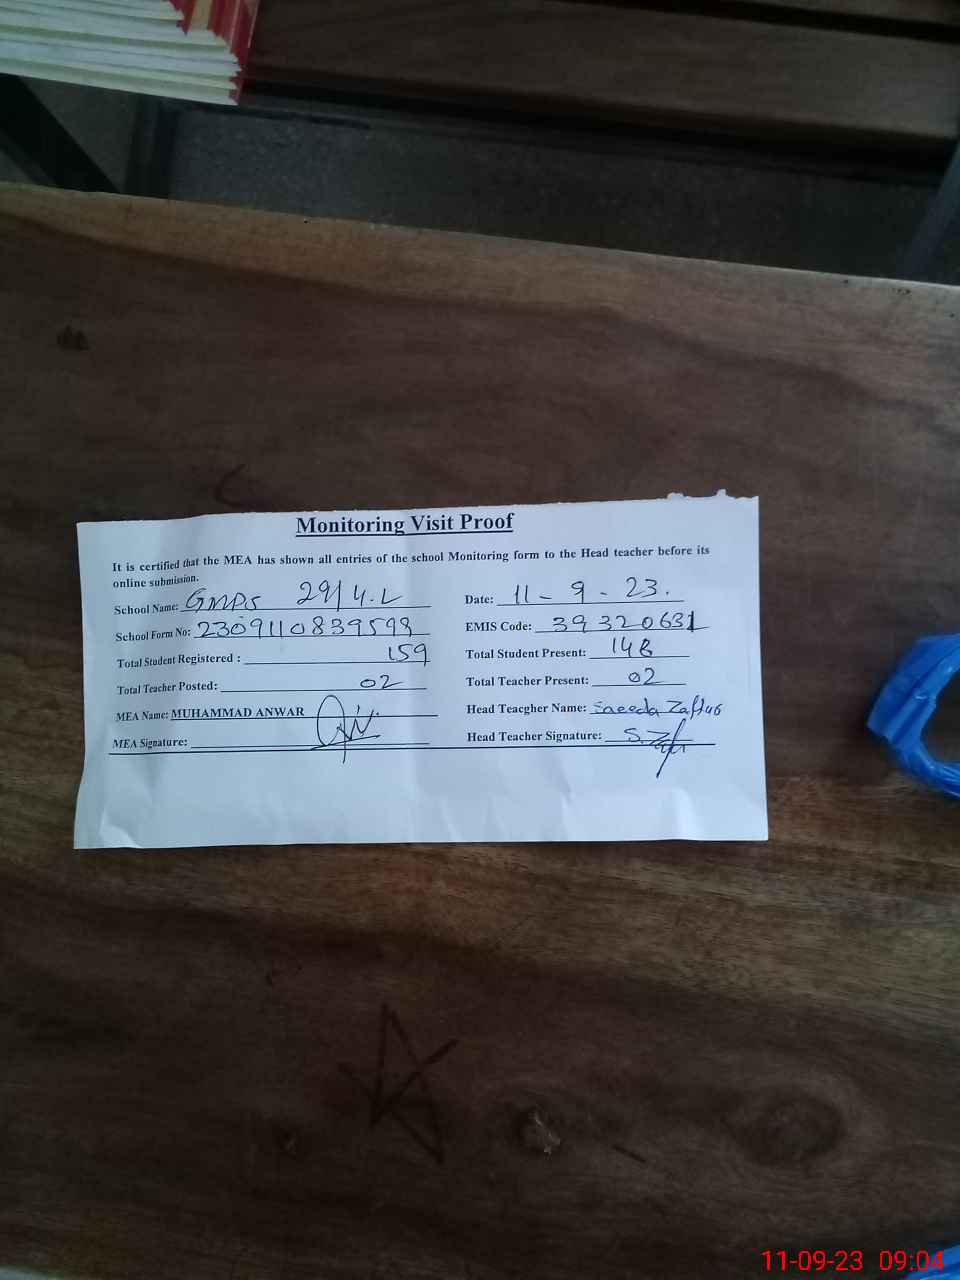 Monitoring Visit Proof
It is certified that the MEA has shown all entries of the school Monitoring form to the Head teacher before its
online submission.
School Name: GMPS 29/4.L Date: 11 - 9 - 23.
School Form No: 2309110839598 EMIS Code: 39320631
Total Student Registered : 159 Total Student Present: 148
Total Teacher Posted: 02 Total Teacher Present: 02
MEA Name: MUHAMMAD ANWAR Head Teacgher Name: Saeeda
MEA Signature: Head Teacher Signature:
11-09-23 09:04